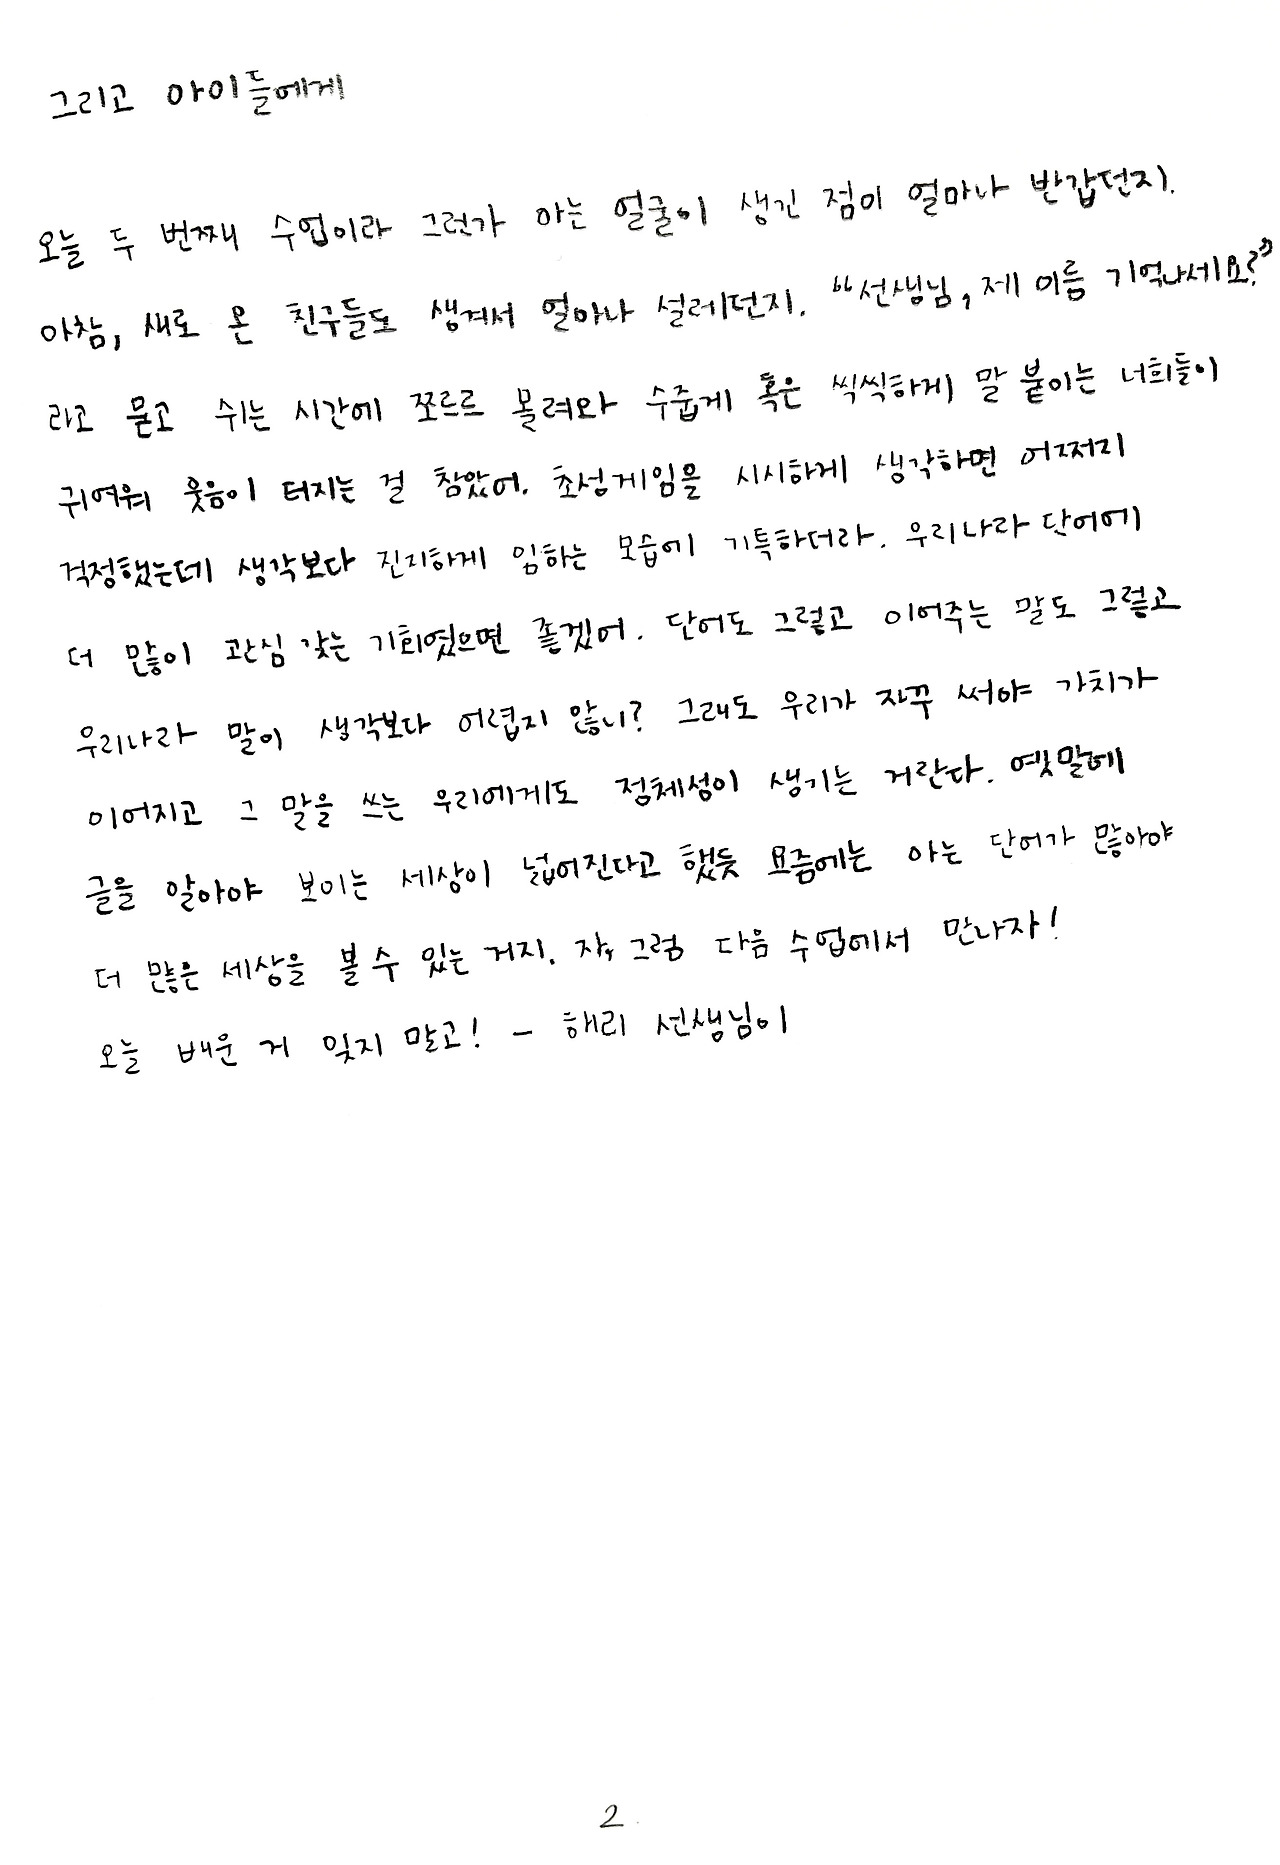 그리고 아이들에게
오늘 두 번째 수업이라 그런가 아는 얼굴이 생긴 점이 얼마나 반갑던지.
아참, 새로 온 친구들도 생겨서 얼마나 설레던지. “선생님, 제 이름 기억나세요?”
라고 묻고 쉬는 시간에 쪼르르 몰려와 수줍게 혹은 씩씩하게 말 붙이는 너희들이
귀여워 웃음이 터지는 걸 참았어. 초성게임을 시시하게 생각하면 어쩌지
걱정했는데 생각보다 진지하게 임하는 모습에 기특하더라. 우리나라 단어에
더 많이 관심 갖는 기회였으면 좋겠어. 단어도 그렇고 이어주는 말도 그렇고
우리나라 말이 생각보다 어렵지 않니? 그래도 우리가 자꾸 써야 가치가
이어지고 그 말을 쓰는 우리에게도 정체성이 생기는 거란다. 옛말에
글을 알아야 보이는 세상이 넓어진다고 했듯 요즘에는 아는 단어가 많아야
더 많은 세상을 볼 수 있는 거지. 자, 그럼 다음 수업에서 만나자!
오늘 배운 거 잊지 말고! - 해리 선생님이
2